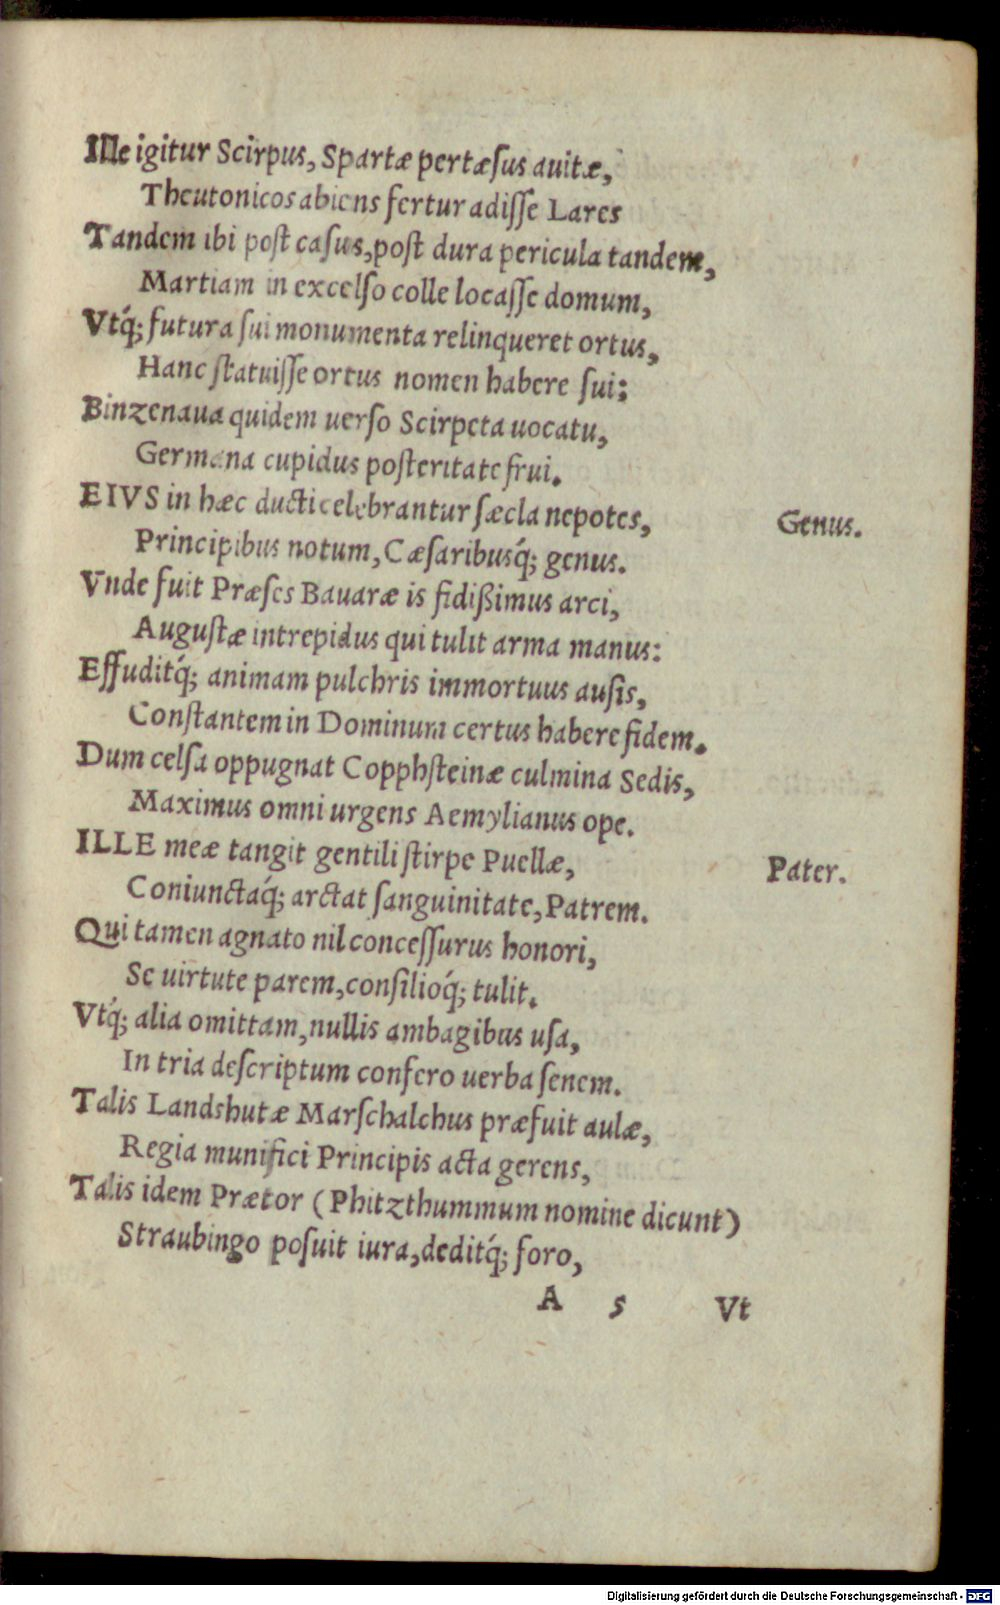 Ille igitur Scirpus, Spartæ pertæſus auitæ,
Theutonicos abiens fertur adiſſe Lares
Tandem ibi poſt caſus, poſt dura pericula tandem,
Martiam in excelſo colle locaſſe domum,
Vtq́; futura ſui monumenta relinqueret ortus,
Hanc ſtatuiſſe ortus nomen habere ſui:
Binzenaua quidem uerſo Scirpeta uocatu,
Germana cupidus poſteritate frui.
EIVS in hæc ducti celebrantur ſæcla nepotes,
Genus.
Principibus notum, Cæſaribusq́; genus.
Vnde fuit Præſes Bauaræ is fidißimus arci,
Auguſtæ intrepidus qui tulit arma manus:
Effuditq́; animam pulchris immortuus auſis,
Conſtantem in Dominum certus habere fidem.
Dum celſa oppugnat Copphſteinæ culmina Sedis,
Maximus omni urgens Aemylianus ope.
ILLE meæ tangit gentili ſtirpe Puellæ,
Pater.
Coniunctaq́; arctat ſanguinitate, Patrem.
Qui tamen agnato nil conceſſurus honori,
Se uirtute parem, conſilioq́; tulit.
Vtq́; alia omittam, nullis ambagibus uſa,
In tria deſcriptum confero uerba ſenem.
Talis Landshutæ Marſchalchus præfuit aulæ,
Regia munifici Principis acta gerens,
Talis idem Prætor (Phitzthummum nomine dicunt)
Straubingo poſuit iura, deditq́; foro,
A 5 Vt
Digitalisierung gefördert durch die Deutsche Forschungsgemeinschaft - DFG